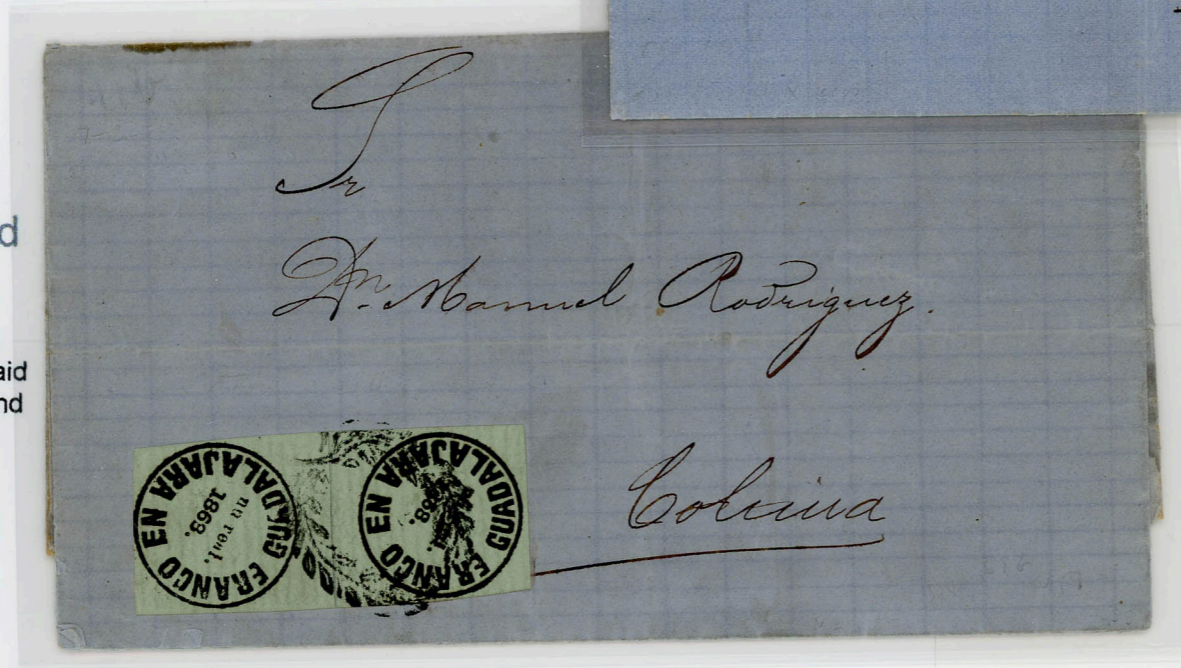 d
aid
nd
Sr
Dn. Manuel Rodriguez.
Colima
FRANCO EN GUADALAJARA
un real.
1868.
FRANCO EN GUADALAJARA
868.